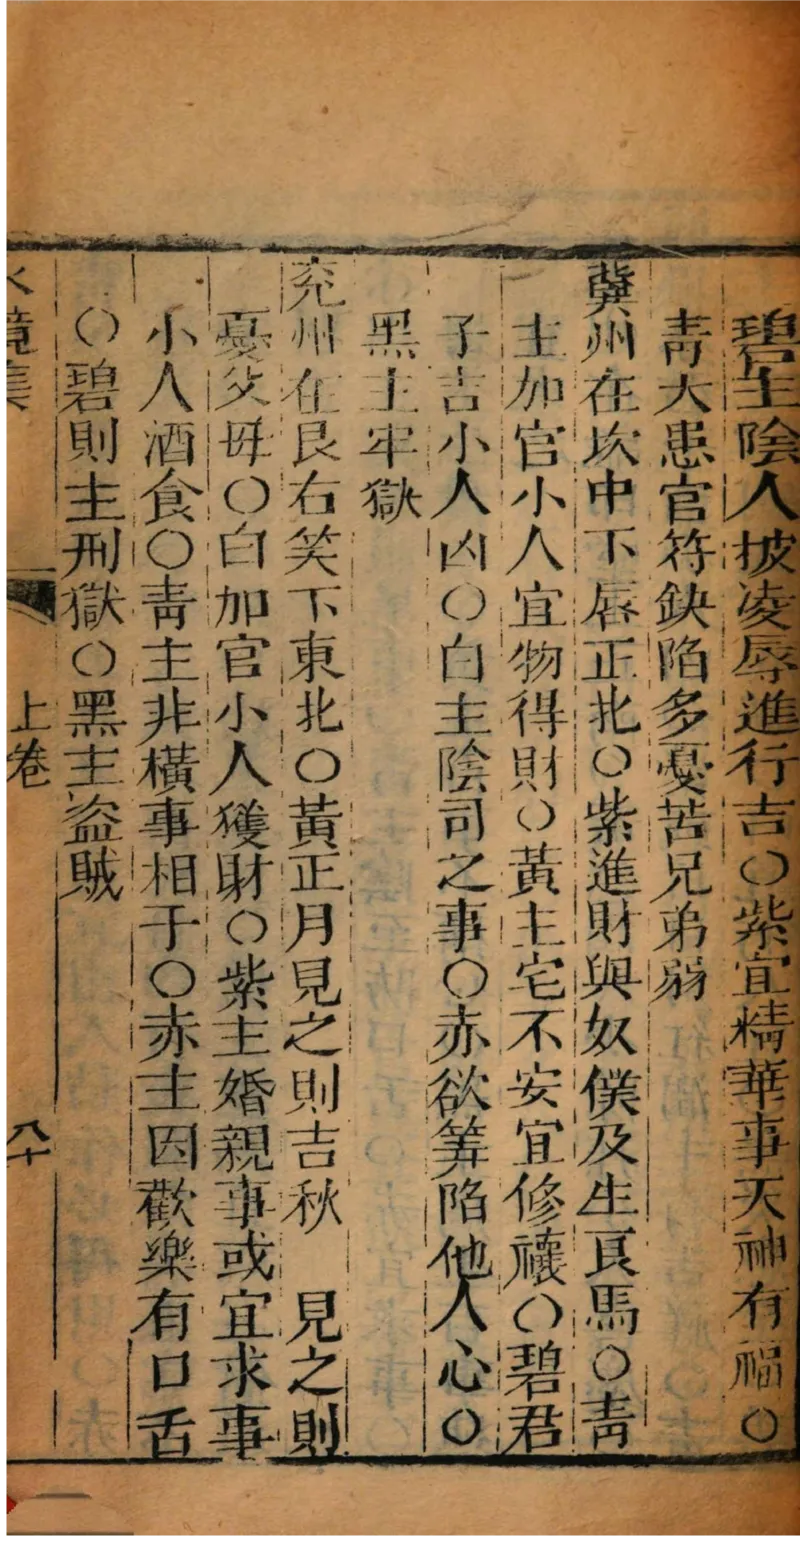 碧主陰人披凌辱進行吉〇紫宜精華事天神有福〇
青大患官符缺陷多憂苦兄弟弱
冀州在坎中下唇正北〇紫進財與奴僕及生良馬〇青
主加官小人宜物得財〇黃主宅不安宜修禳〇碧君
子吉小人凶〇白主陰司之事〇赤欲筭陷他人心〇
黑主牢獄
兖州在艮右笑下東北〇黃正月見之則吉秋 見之則
憂父母〇白加官小人獲財〇紫主婚親事或宜求事
小人酒食〇青主非橫事相于〇赤主因歡樂有口舌
〇碧則主刑獄〇黑主盜賊
水鏡集 上卷 八十